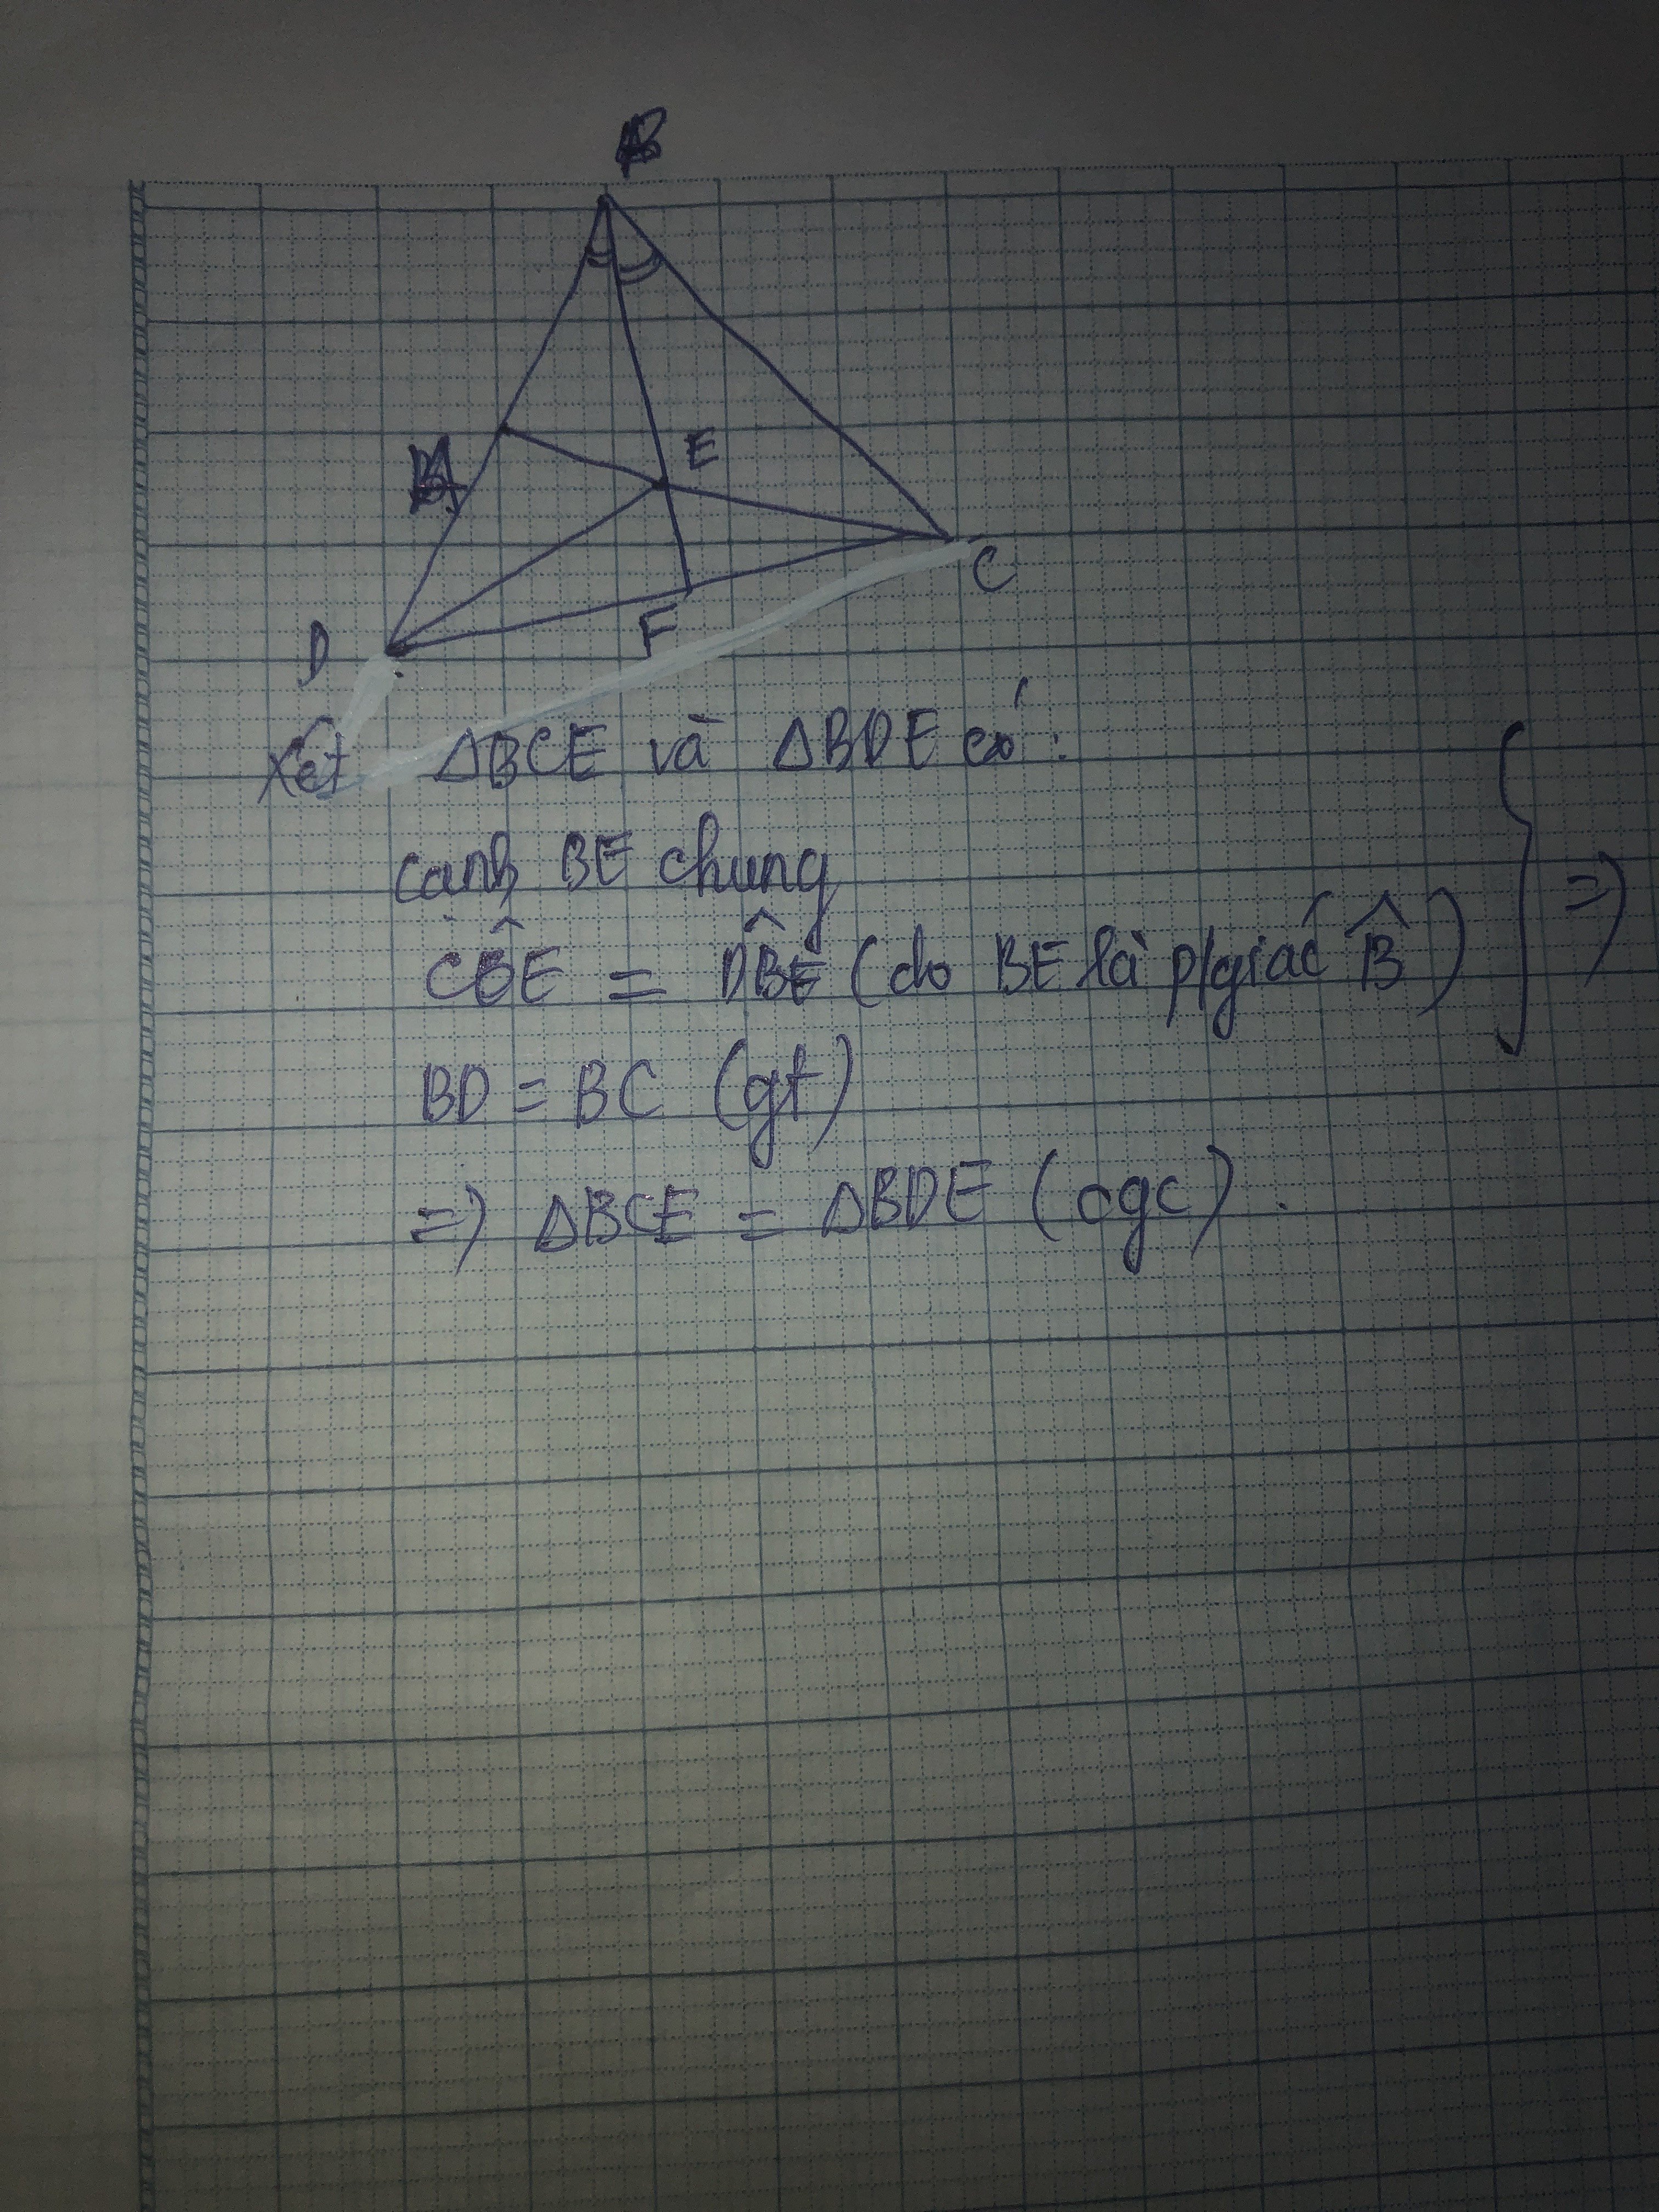 B
A
E
C
D
F
Xét ΔBCE và ΔBDE có :
cạnh BE chung
CBE = DBE (do BE là p/giác B̂) } =>
BD = BC (gt)
=> ΔBCE = ΔBDE (cgc) .